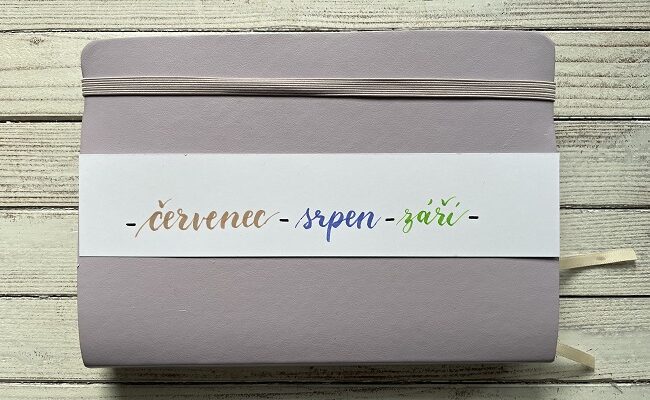 - červenec - srpen - září -